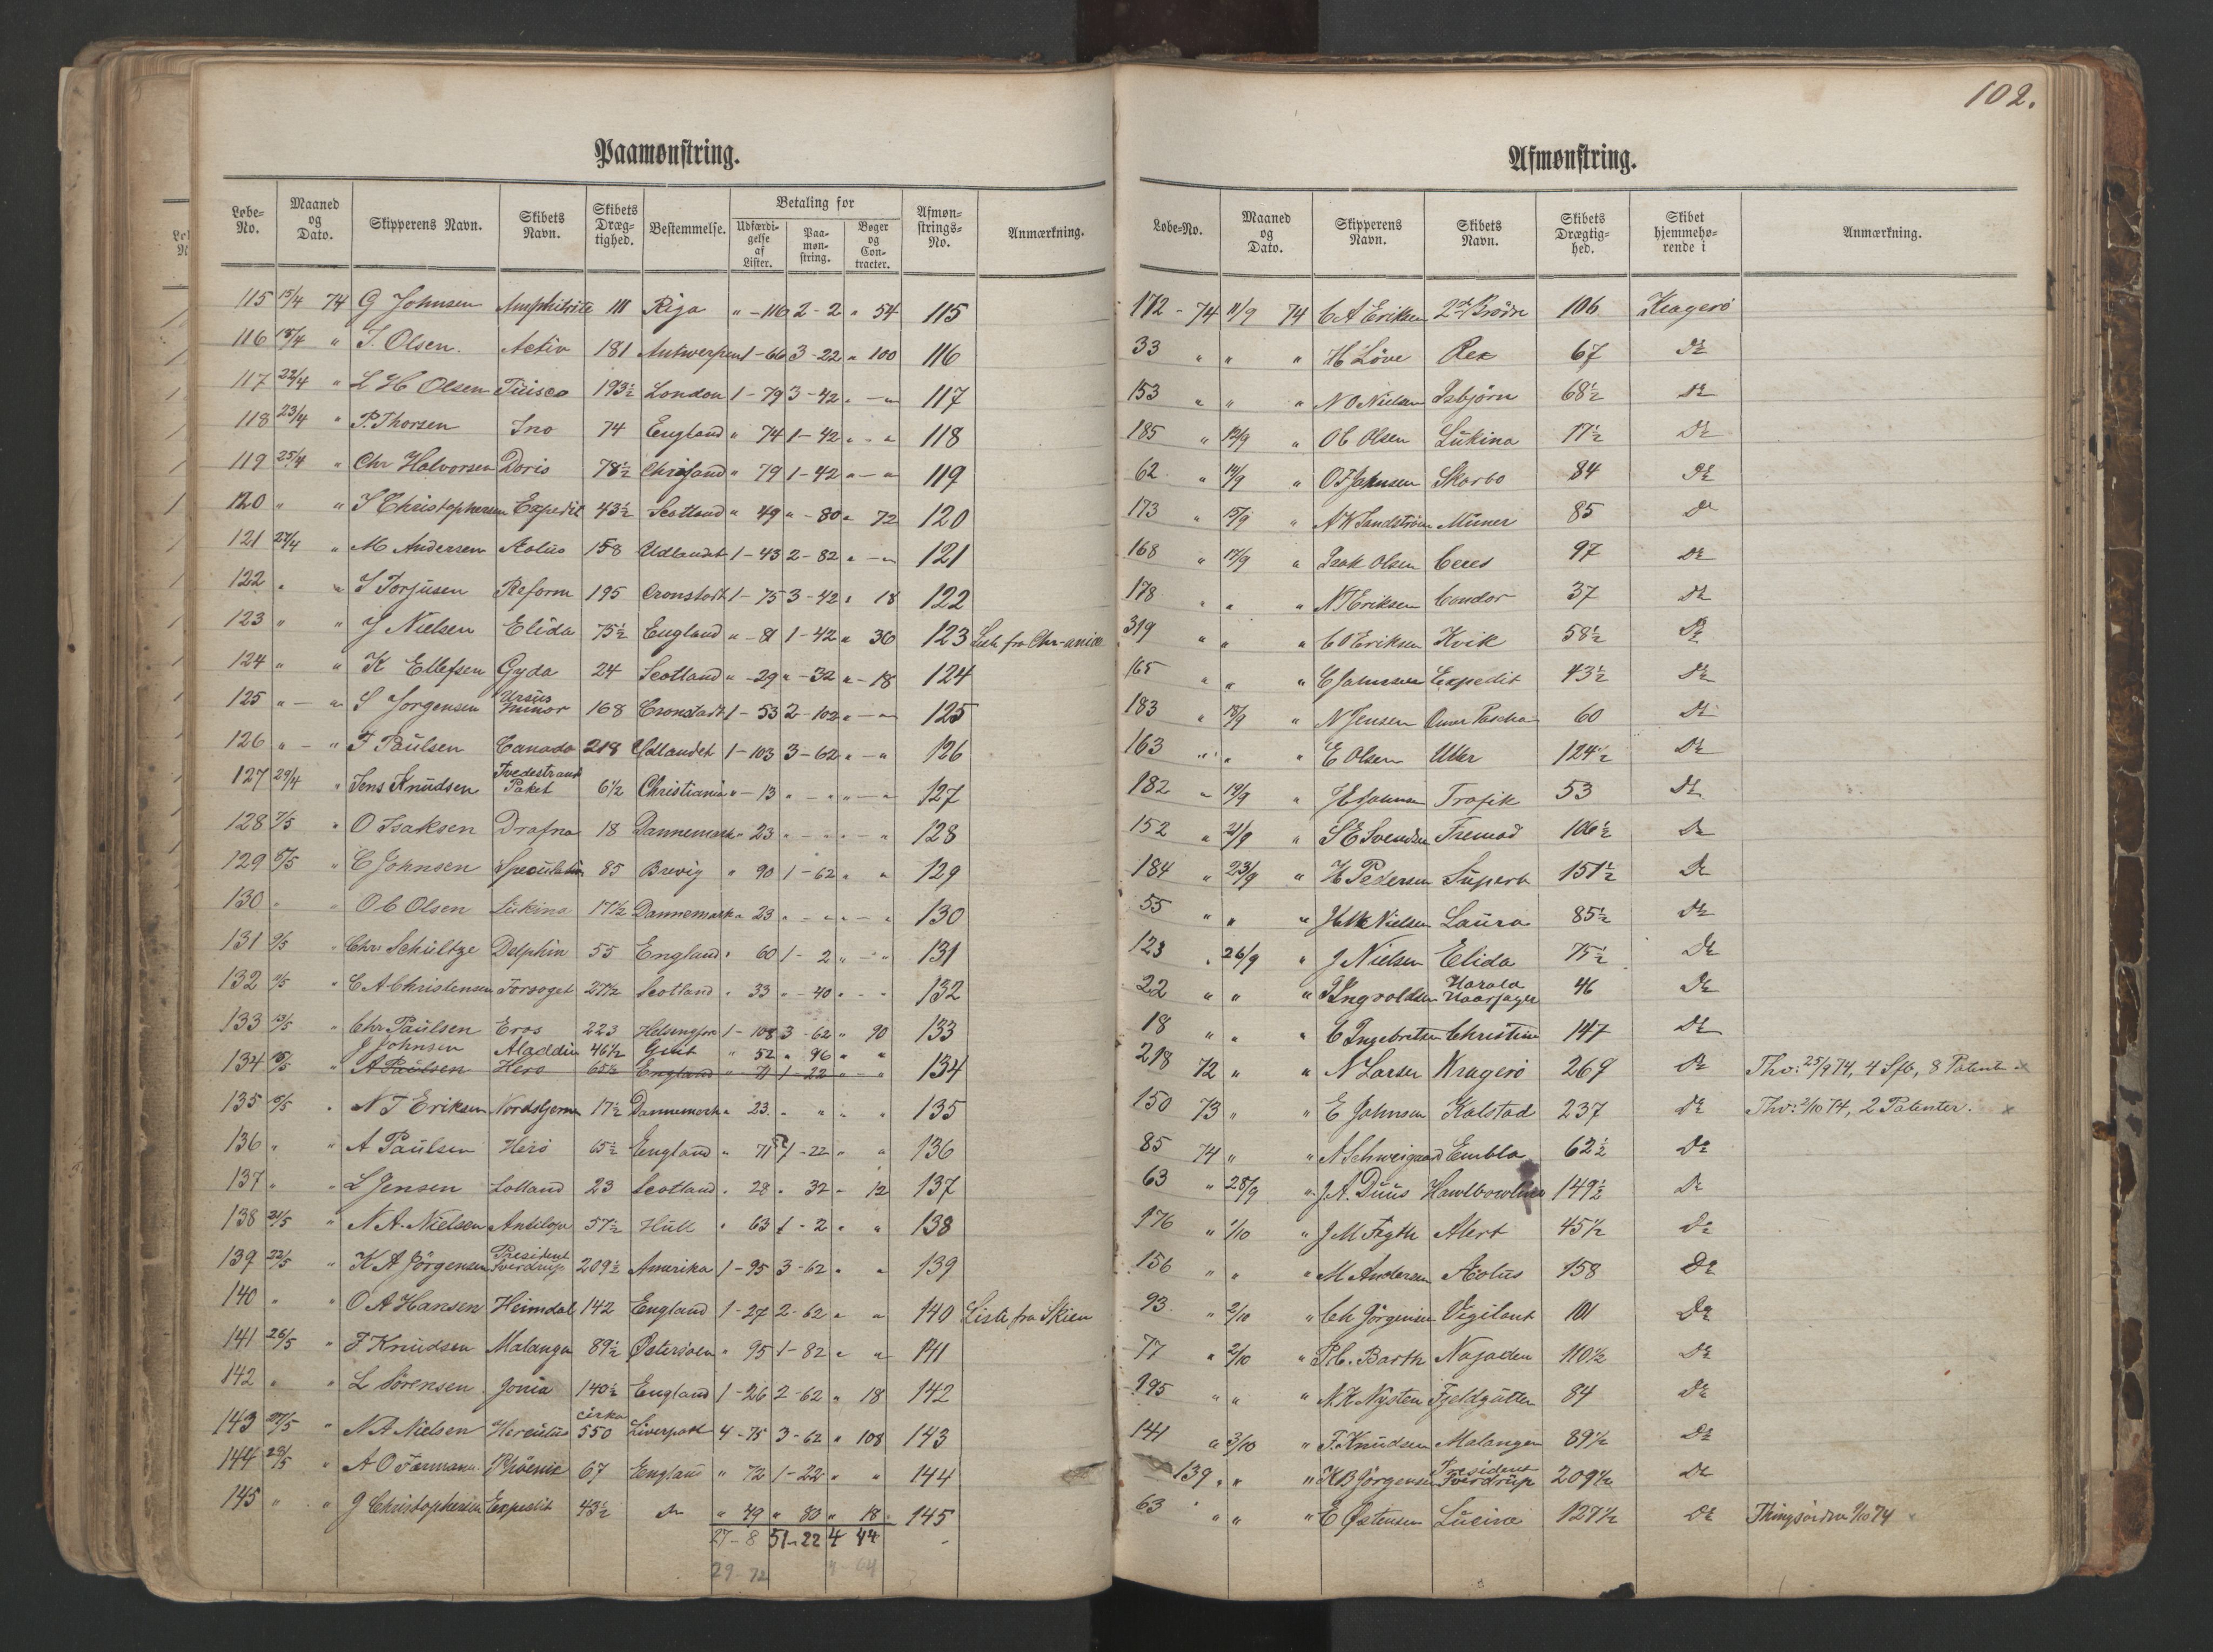 102.
Paamønstring.
Løbe-No. Maaned og Dato. Skipperens Navn. Skibets Navn. Skibets Dræg-tighed. Bestemmelse. Betaling for Udfærdi-gelse af Lister. Paa-møn-string. Bøger og Con-tracter. Afmøn-strings-No. Anmærkning.
115 15/4 74 G Johnsen Amphitrite 111 Riga " - 116 2 - 2 " 54 115
116 15/4 " J. Olsen. Activ 181 Antwerpen 1 - 66 3 - 22 " 100 116
117 22/4 " L H Olsen Tuisco 193½ London 1 - 79 3 - 42 " - " 117
118 23/4 " P. Thorsen Ino 74 England " 74 1 - 42 " - " 118
119 25/4 " Chr Halvorsen Doris 78½ Chrisand " 79 1 - 42 " - " 119
120 " " J Christophersen Expedit 43½ Scotland " 49 " - 80 " 72 120
121 27/4 " M Andersen Æolus 158 Udlandet 1 - 43 2 - 82 " - " 121
122 " " J Torjusen Reform 195 Cronstadt 1 - 75 3 - 42 " 18 122
123 " " J Nielsen Elida 75½ England " - 81 1 - 42 " 36 123 Liste fra Chr-ania
124 " " K Ellefsen Gyda 24 Scotland " - 29 " - 32 " - 18 124
125 " - " S Jorgensen Ursus minor 168 Cronstadt 1 - 53 2 - 102 " - " 125
126 " - " F Paulsen Canada 218 Udlandet 1 - 103 3 - 62 " - " 126
127 29/4 " Jens Knudsen Tvedestrand Paket 6½ Christiania " - 13 " - " " - " 127
128 2/5 " O Isaksen Drafna 18 Dannemark " 23 " - " " - " 128
129 5/5 " C Johnsen Speculation 85 Brevig " 90 1 - 62 " " 129
130 " " O C Olsen Lukina 17½ Dannemark " 23 " - " " - " 130
131 9/5 " Chr Schultze Delphin 55 England " 60 1 - 2 " - " 131
132 9/5 " C A Christensen Forsøget 27½ Scotland " 33 " - 40 " - " 132
133 13/5 " Chr Paulsen Eros 223 Helsingfors 1 - 108 3 - 62 " 90 133
J Johnsen Aladdin 46½ Gent " 52 " 96 " "
134 15/5 " A Paulsen Hero 65½ England " 71 1 - 22 " - " 134
135 15/5 " N T Eriksen Nordstjernen 17½ Dannemark " 23 " " " " 135
136 " " A Paulsen Hero 65½ England " 71 1 - 22 " " 136
137 " " L Jensen Lolland 23 Scotland " 28 " 32 - 12 137
138 21/5 " N A. Nielsen Antilope 57½ Hull " 63 1 - 2 " " 138
139 22/5 " K A Jörgensen President Sverdrup 209½ Amerika 1 - 95 3 - 62 " " 139
140 " " O A Hansen Heimdal 142 England 1 - 27 2 - 62 " " 140 Liste fra Skien
141 26/5 " F Knudsen Malangen 89½ Østersøen " 95 1 - 82 " " 141
142 " " L Sörensen Jonia 140½ England 1 - 26 2 - 62 " 18 142
143 27/5 " N A Nielsen Herculus cirka 550 Liverpool 4 - 75 3 - 62 " 108 143
144 28/5 " A O Farmann. Phöenix 67 England " 72 1 - 22 " " 144
145 " " J Christophersen Expedit 43½ do " 49 " 80 " 18 145
27 - 8 51 - 22 4 44
29 - 72
Afmønstring.
Løbe-No. Maaned og Dato. Skipperens Navn. Skibets Navn. Skibets Drægtig-hed. Skibet hjemmehø-rende i Anmærkning.
172 - 74 11/9 74 C A Eriksen 2de Brödre 106 Kragerö
33 " " " H Löve Rex 67 Do
153 " " " N O Nielsen Isbjörn 68½ Do
185 " 12/9 " O C Olsen Lukina 17½ Do
62 " 14/9 " O T Johnsen Skarbo 84 Do
173 " 15/9 " A W Sandström Muner 85 Do
168 " 17/9 " Isak Olsen Ceres 97 Do
178 " " " N T Eriksen Condor 37 Do
319 " " " C O Eriksen Kvik 58½ Do
165 " " " C Johnsen Expedit 43½ Do
183 " 18/9 " N Jensen Omer Pascha 60 Do
163 " " " E Olsen Uller 124½ Do
182 " 19/9 " J E Johnsen Trafik 53 Do
152 " 21/9 " S E Svendsen Fremad 106½ Do
184 " 23/9 " H Pedersen Superb 151½ Do
55 " " " H M Nielsen Laura 85½ Do
123 " 26/9 " J Nielsen Elida 75½ Do
22 " " " J Ingvoldsen Harald Haarfager 46 Do
18 " " " C Ingebretsen Christine 147 Do
218 72 " " N Larsen Kragerö 269 Do Thv: 25/9 74, 4 Sfb, 8 Patent x
150 73 " " E Johnsen Kalstad 237 Do Thv: 2/10 74, 2 Patenter. x
85 74 " " A Schweigaard Embla 62½ Do
63 " 28/9 " J A. Duus Hawlbowline 149½ Do
176 " 1/10 " J M Fegth Alert 45½ Do
156 " " " M Andersen Æolus 158 Do
93 " 2/10 " Ch Jörgensen Vigilant 101 Do
77 " 2/10 " P C. Barth Najaden 110½ Do
195 " " " N. K Nysten Fjeldgutten 84 Do
141 " 3/10 " F. Knudsen Malangen 89½ Do
139 " " " K A Jörgensen President Sverdrup 209½ Do
63 " " " E Østensen Lucina 127½ Do Thingsöidra 1/10 74